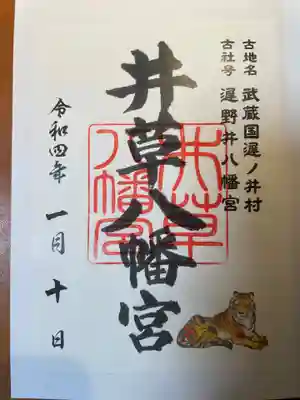 古地名 武蔵国遅ノ井村
古社号 遅野井八幡宮
井草八幡宮
井草
八幡宮
令和四年 一月十日